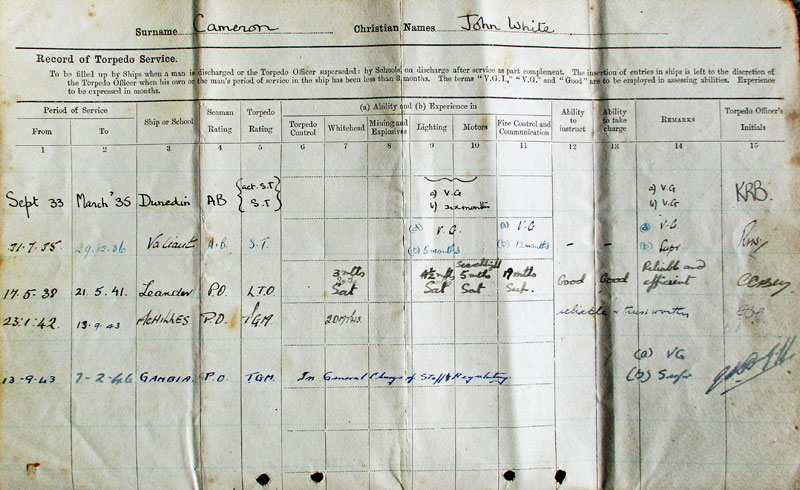 Surname Cameron Christian Names John White
Record of Torpedo Service.
To be filled up by Ships when a man is discharged or the Torpedo Officer superseded: by Schools, on discharge after service as part complement. The insertion of entries in ships is left to the discretion of
the Torpedo Officer when his own or the man's period of service in the ship has been less than 3 months. The terms "V.G.I.," "V.G." and "Good" are to be employed in assessing abilities. Experience
to be expressed in months.
Period of Service
From
1
To
2
Ship or School
3
Seaman
Rating
4
Torpedo
Rating
5
(a) Ability and (b) Experience in
Torpedo
Control
6
Whitehead
7
Mining and
Explosives
8
Lighting
9
Motors
10
Fire Control and
Communication
11
Ability
to
instruct
12
Ability
to take
charge
13
Remarks
14
Torpedo Officer's
Initials
15
Sept 33 March '35 Dunedin AB
act. S.T
S.T
a) V.G
b) six months
a) V.G
b) V.G
KRB.
21.7.35 29.12.36 Valiant A.B. S.T.
(a) V.G.
(b) 5 months
(a) V.G
(b) 12 months
- -
(a) V.G
(b) Supr.
17.5.38 21.5.41. Leander P.O. L.T.O.
3 mths
Sat
4½ mths
Sat
Searchlight
5 mths
Sat
19 mths
Sup.
Good Good
Reliable and
efficient
23.1.42 13.9.43 ACHILLES P.O. T.G.M. 20 Mths. reliable + trustworthy
13-9.43 7-2-46 GAMBIA. P.O. T.G.M. In General Charge of Staff & Regulating
(a) VG
(b) Supr